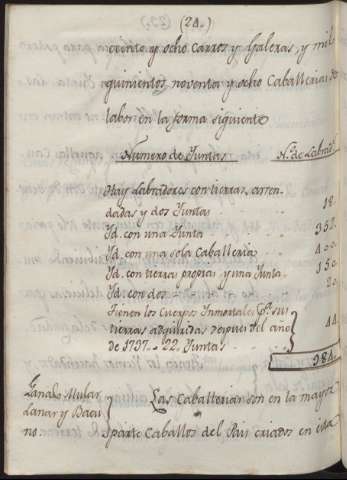 (24.)
ciento y ocho Carros y Galeras, y mil
quinientos noventa y ocho Caballerias de
labor en la forma siguiente
Numero de Juntas N.º de Labrad.
Hay Labradores con tierras arren-
dadas y dos Juntas 18.
Yd. con una Junta
Yd. con una sola Caballeria
Yd. con tierras propias y una Junta. 150.
Yd. con dos
Tienen los Cuerpos Inmortales
tierras adquiridas despues del año
de 1737 22. Juntas 44
984.
Ganado Mular
Lanar y Bacu
no.
Las Caballerias son en la mayor
parte Caballos del Pais criados en esta